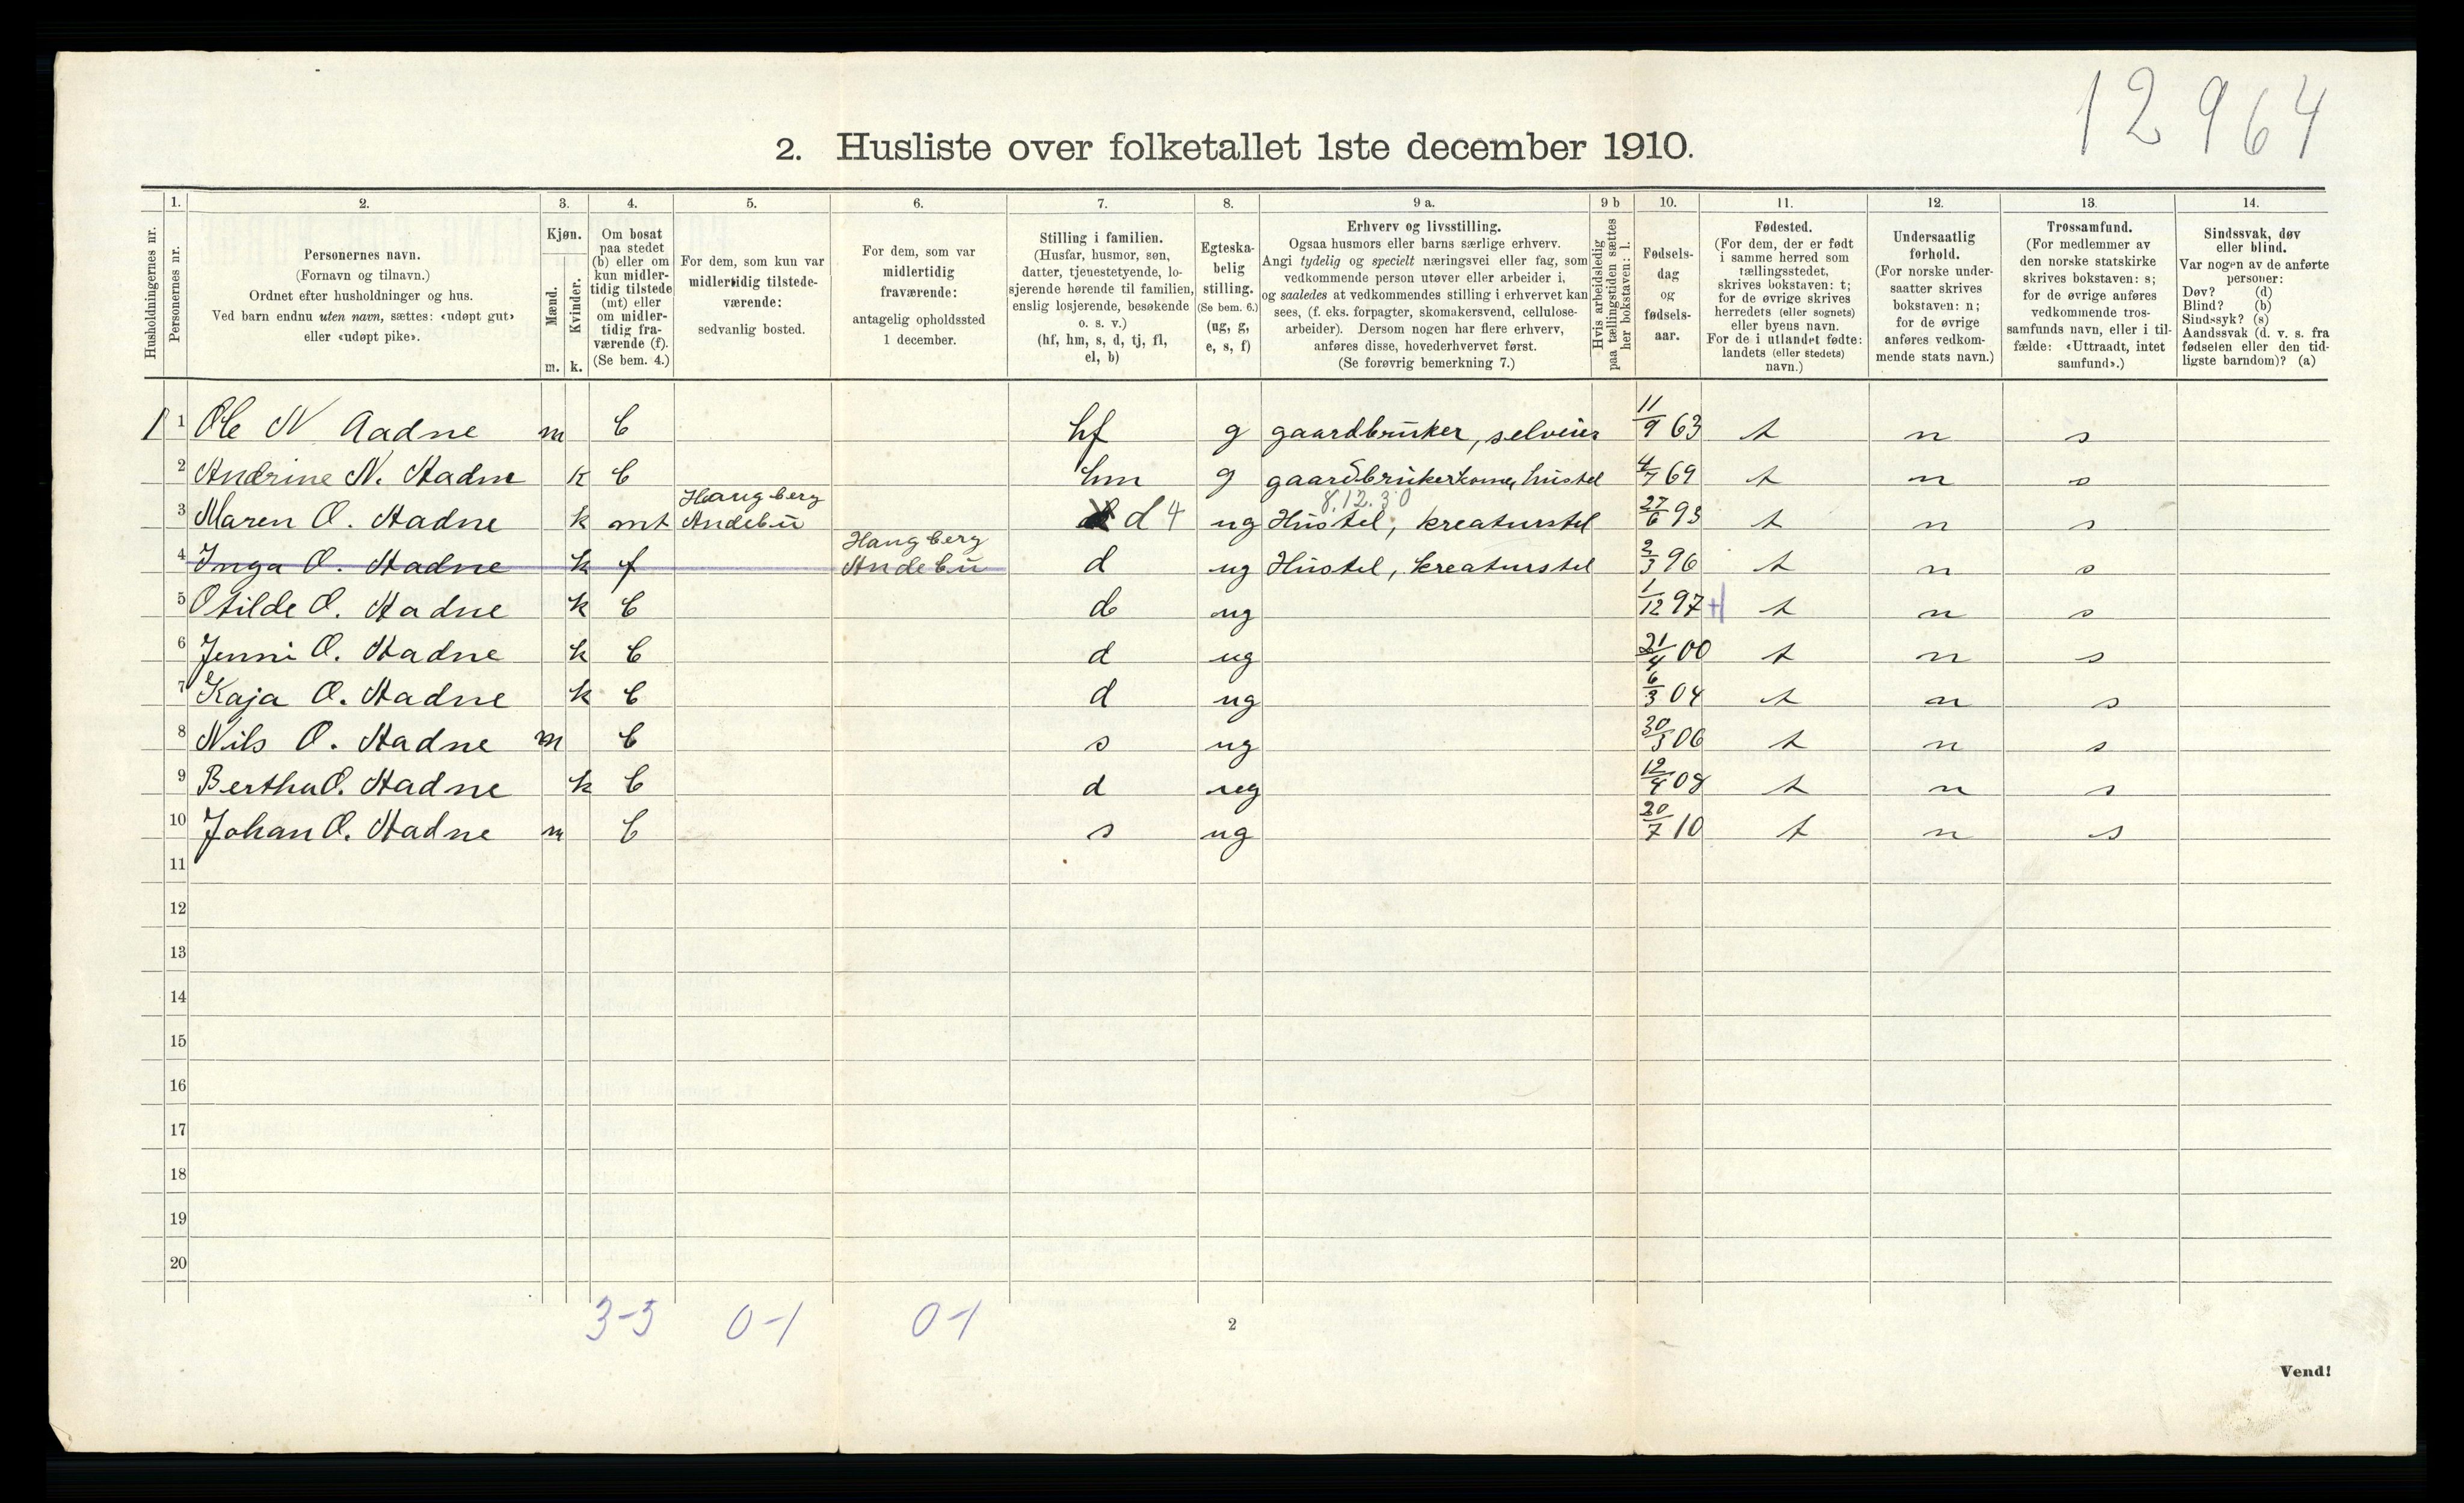 12 964
2. Husliste over folketallet 1ste december 1910.
Husholdningernes nr.
1. Personernes nr.
2. Personernes navn.
(Fornavn og tilnavn.)
Ordnet efter husholdninger og hus.
Ved barn endnu uten navn, sættes: «udøpt gut»
eller «udøpt pike».
3. Kjøn.
Mænd. m.
Kvinder. k.
4. Om bosat
paa stedet
(b) eller om
kun midler-
tidig tilstede
(mt) eller
om midler-
tidig fra-
værende (f).
(Se bem. 4.)
5. For dem, som kun var
midlertidig tilstede-
værende:
sedvanlig bosted.
6. For dem, som var
midlertidig
fraværende:
antagelig opholdssted
1 december.
7. Stilling i familien.
(Husfar, husmor, søn,
datter, tjenestetyende, lo-
sjerende hørende til familien,
enslig losjerende, besøkende
o. s. v.)
(hf, hm, s, d, tj, fl,
el, b)
8. Egteska-
belig
stilling.
(Se bem. 6.)
(ug, g,
e, s, f)
9 a. Erhverv og livsstilling.
Ogsaa husmors eller barns særlige erhverv.
Angi tydelig og specielt næringsvei eller fag, som
vedkommende person utøver eller arbeider i,
og saaledes at vedkommendes stilling i erhvervet kan
sees, (f. eks. forpagter, skomakersvend, cellulose-
arbeider). Dersom nogen har flere erhverv,
anføres disse, hovederhvervet først.
(Se forøvrig bemerkning 7.)
9 b Hvis arbeidsledig
paa tællingstiden sættes
her bokstaven: l.
10. Fødsels-
dag
og
fødsels-
aar.
11. Fødested.
(For dem, der er født
i samme herred som
tællingsstedet,
skrives bokstaven: t;
for de øvrige skrives
herredets (eller sognets)
eller byens navn.
For de i utlandet fødte:
landets (eller stedets)
navn.)
12. Undersaatlig
forhold.
(For norske under-
saatter skrives
bokstaven: n;
for de øvrige
anføres vedkom-
mende stats navn.)
13. Trossamfund.
(For medlemmer av
den norske statskirke
skrives bokstaven: s;
for de øvrige anføres
vedkommende tros-
samfunds navn, eller i til-
fælde: «Uttraadt, intet
samfund».)
14. Sindssvak, døv
eller blind.
Var nogen av de anførte
personer:
Døv? (d)
Blind? (b)
Sindssyk? (s)
Aandssvak (d. v. s. fra
fødselen eller den tid-
ligste barndom)? (a)
1 1 Ole N Aadne m b hf g gaardbruker, selveier 11/9 63 t n s
2 Andrine N. Aadne k b hm g gaardbrukerkone, hustel 4/7 69 t n s
Haugberg 8.12.30
3 Maren O. Aadne k mt Andebu d 4 ug Hustel, kreaturstel 27/6 93 t n s
Haugberg
4 Inga O. Aadne k f Andebu d ug Hustel, kreaturstel 2/3 96 t n s
5 Otilde O. Aadne k b d ug 1/12 97 t n s
6 Jenni O. Aadne k b d ug 21/4 00 t n s
7 Kaja O. Aadne k b d ug 6/3 04 t n s
8 Nils O. Aadne m b s ug 30/3 06 t n s
9 Bertha O. Aadne k b d ug 12/4 08 t n s
10 Johan O. Aadne m b s ug 20/7 10 t n s
11
12
13
14
15
16
17
18
19
20
3-5 0-1 0-1
2
Vend!